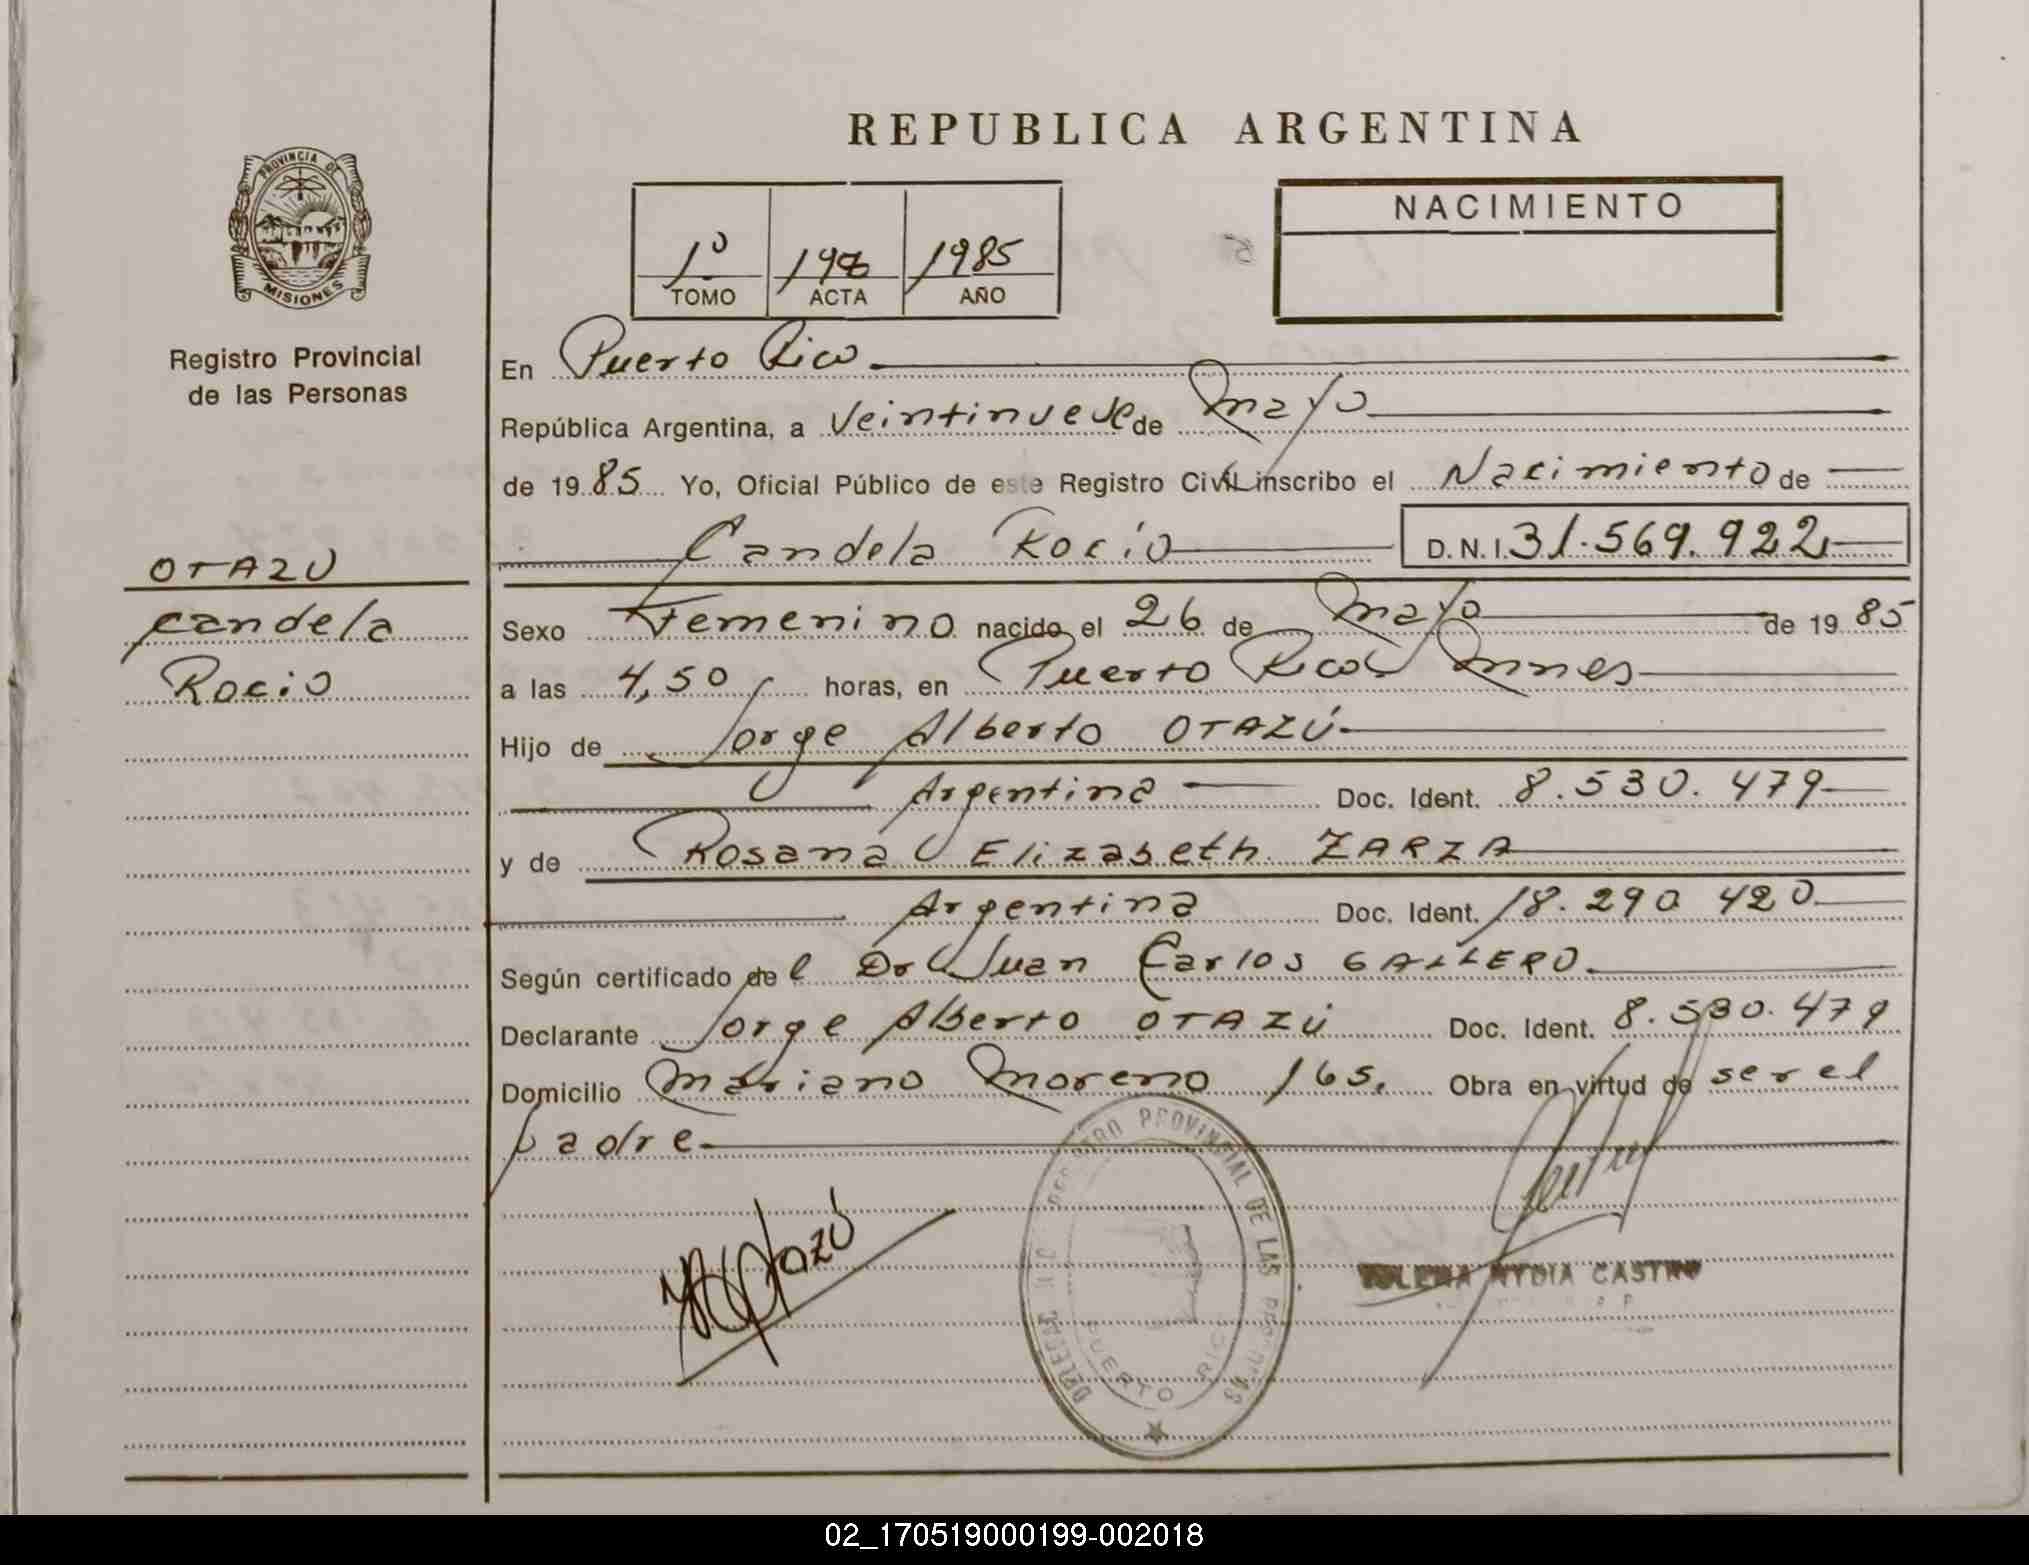 REPUBLICA ARGENTINA
PROVINCIA DE
MISIONES
Registro Provincial
de las Personas
1º 198 1985
TOMO ACTA AÑO
NACIMIENTO
En Puerto Rico
República Argentina, a Veintinueve de Mayo
de 1985 Yo, Oficial Público de este Registro Civil inscribo el Nacimiento de
Candela Rocío D.N.I. 31.569.922
OTAZU
Candela
Rocio
Sexo Femenino nacido el 26 de Mayo de 1985
a las 4,50 horas, en Puerto Rico Mnes
Hijo de Jorge Alberto OTAZÚ
Argentina Doc. Ident. 8.530.479
y de Rosana Elizabeth ZARZA
Argentina Doc. Ident. 18.290.420
Según certificado del Dr Juan Carlos GALLERO
Declarante Jorge Alberto OTAZÚ Doc. Ident. 8.530.479
Domicilio Mariano Moreno 165. Obra en virtud de ser el
padre
REGISTRO PROVINCIAL DE LAS PERSONAS
PUERTO RICO
Otazú
NYDIA CASTRO
02_170519000199-002018